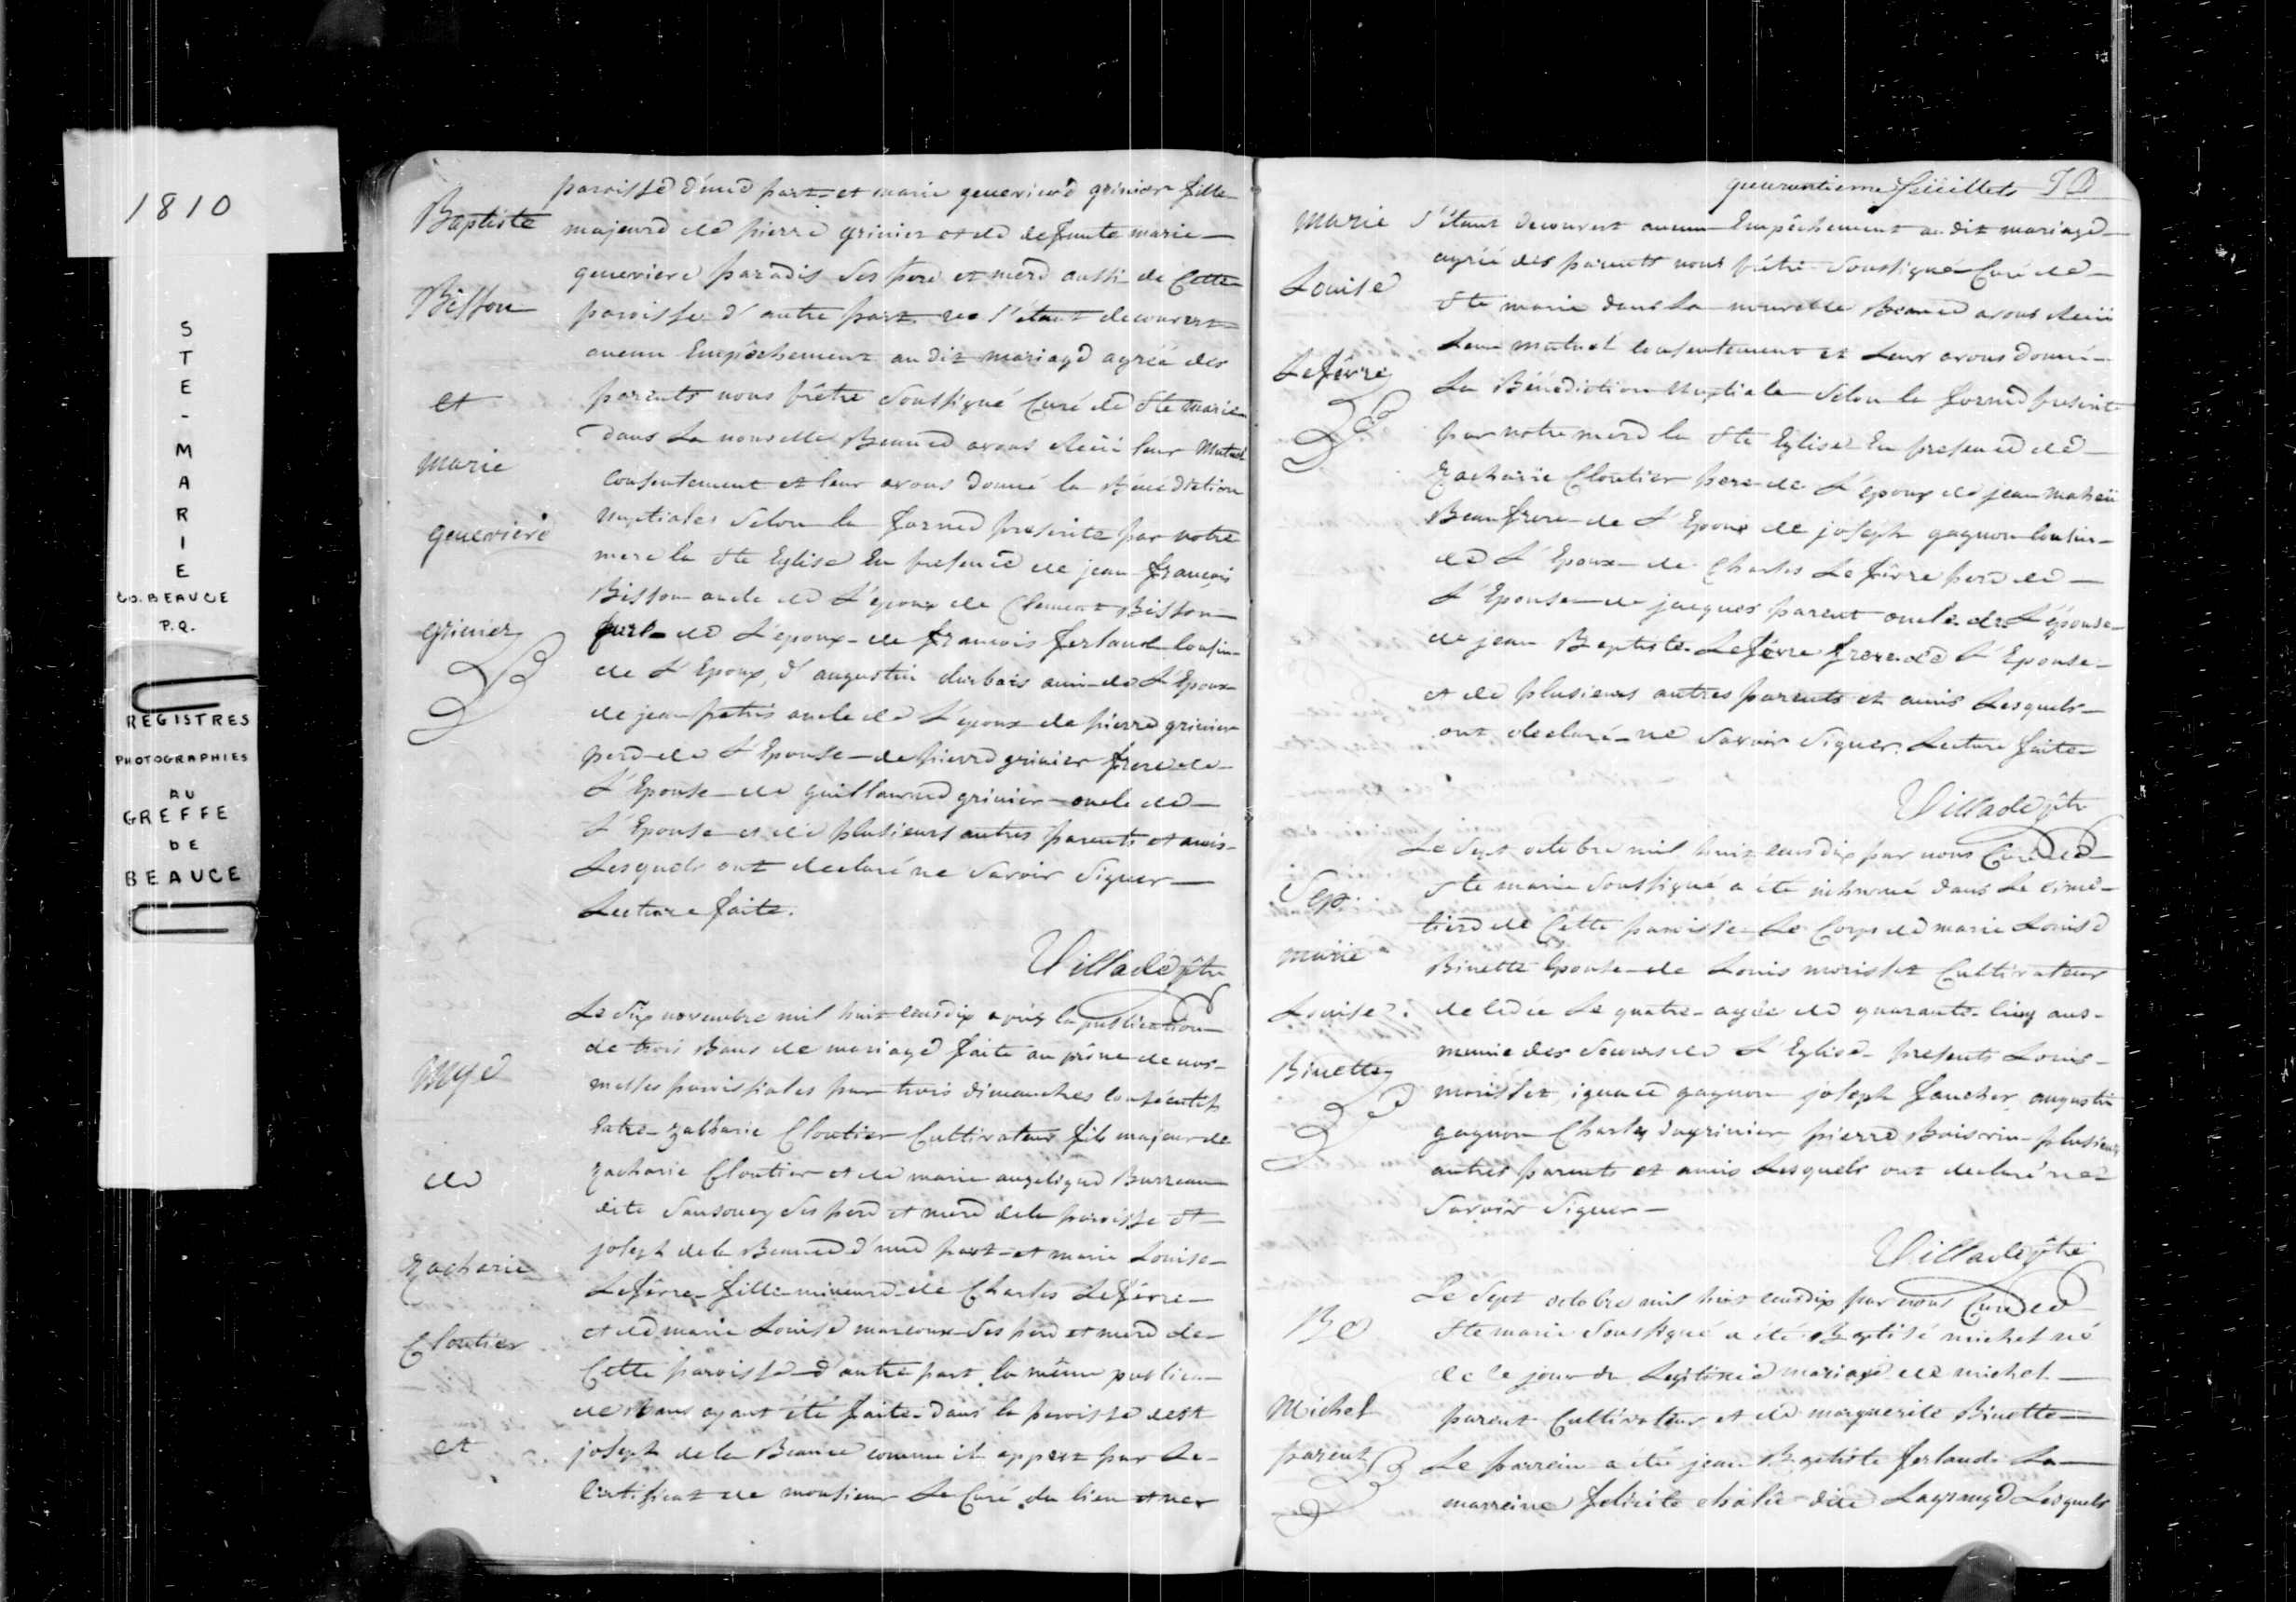 1810
STE-MARIE
CO. BEAUCE
P.Q.
REGISTRES
PHOTOGRAPHIES
AU
GREFFE
DE
BEAUCE
Baptiste
Bisson
et
marie
genevieve
grinier
paroisse d'une part et marie genevieve grinier fille
majeure de pierre grinier et de defunte marie
genevieve paradis ses pere et mere aussi de Cette
paroisse d'autre part ne s'étant decouvert
aucun Empêchement au dit mariage agréé des
parents nous prêtre soussigné Curé de Ste marie
dans La nouvelle Beauce avons Reçü leur Mutuel
Consentement et leur avons donné la Bénédiction
Nuptiales selon la forme prescrite par notre
mere la Ste Eglise En presence de jean françois
Bisson oncle de L'epoux de Clement Bisson
de L'epoux de françois ferland Cousin
de L'Epoux, d'augustin ami de L'Epoux
de jean oncle de L'epoux de pierre grinier
pere de L'Epouse de pierre grinier frere de
L'Epouse de guillaume grinier oncle de
L'Epouse et de plusieurs autres parents et amis
Lesquels ont declaré ne savoir signer
Lecture faite.
Villade ptre
Mge
de
Zacharie
Cloutier
et
Le Six novembre mil huit Cens dix après la publication
de trois Bans de mariage faite au prône de nos
messes paroissiales par trois dimanches Consécutifs
Entre Zacharie Cloutier Cultivateur fils majeur de
Zacharie Cloutier et de marie angelique Bureau
dite Sansoucy ses pere et mere de la paroisse St
joseph de la Beauce d'une part et marie Louise
Lefevre fille mineure de Charles Lefevre
et de marie Louise marcoux ses pere et mere de
Cette paroisse d'autre part, la même publica
de Bans ayant été faite dans la paroisse de St
joseph de la Beauce comme il appert par Le
Certificat de monsieur Le Curé du lieu et ne
quarantieme feüillets JD
marie
Louise
Lefévre
s'étant decouvert aucun Empêchement au dit mariage
agréé des parents nous prêtre soussigné Curé de
Ste marie dans La nouvelle Beauce avons Reçü
Leur mutuel consentement et Leur avons donné
La Bénédiction Nuptiale selon la forme prescrite
par notre mere la Ste Eglise En presence de
Zacharie Cloutier pere de L'epoux de jean maheü
Beaufrere de L'Epoux de joseph gagnon Cousin
de L'Epoux de Charles Lefévre pere de
L'Epouse de jacques parent oncle de L'épouse
de jean Baptiste Lefévre frere de L'Epouse
et de plusieurs autres parents et amis Lesquels
ont declaré ne savoir signer. Lecture faite
Villade ptre
Sep.
marie
Louise
Binette
Le Sept octobre mil huit Cens dix par nous Curé de
Ste marie soussigné a été inhumé dans Le cime
tiere de Cette paroisse Le Corps de marie Louise
Binette Epouse de Louis morisset Cultivateur
decedée Le quatre agée de quarante Cinq ans
munie des secours de L'Eglise presents Louis
morisset ignace gagnon joseph faucher augustin
gagnon Charles pierre plusieurs
autres parents et amis Lesquels ont declaré ne
savoir signer
Villade ptre
Be
Michel
parent
Le Sept octobre mil huit Cens dix par nous Curé de
Ste marie soussigné a été Baptisé michel né
de ce jour du Legitime mariage de michel
parent Cultivateur et de marguerite Binette
Le parrein a été jean Baptiste ferland La
marreine felicite dite Lagrange Lesquels